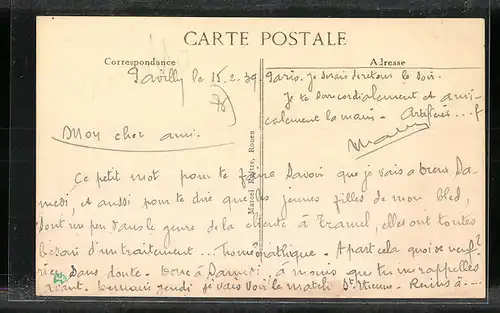 CARTE POSTALE
Correspondance
Adresse
Pavilly le 15.2.39
Mon cher ami.
Ce petit mot pour te faire savoir que je vais a
medi, et aussi pour te dire que les jeunes filles de mon bled,
sont un peu dans le genre de la cliente à elles ont toutes
besoin d'un traitement... homéopathique. A part cela quoi de neuf?
rien sans doute. Donc à Samedi, à moins que tu me rappelles
avant. Demain jeudi je vais voir le match St Etienne - Reims à ....
Paris. Je serais de retour le soir.
Je te serre cordialement et ami-
calement la main.
Marcel Rouen